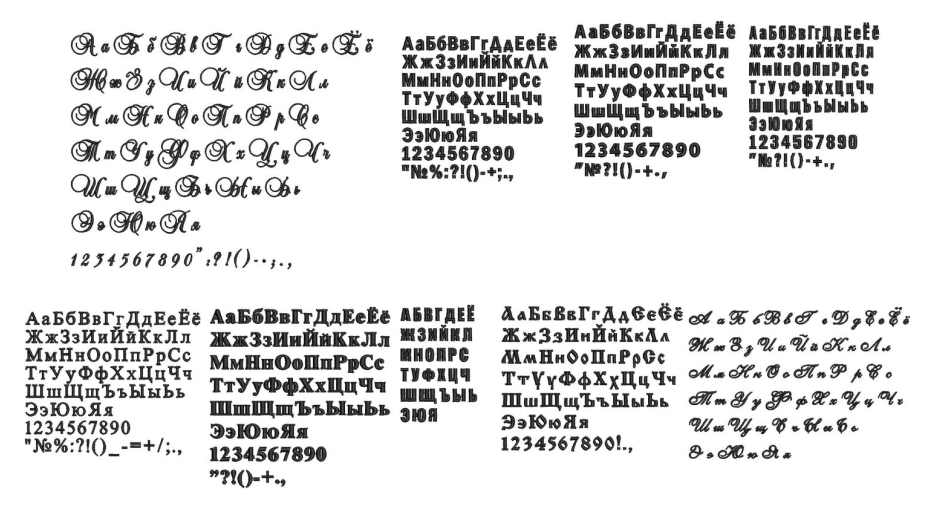 АаБбВвГгДдЕеЁё
ЖжЗзИиЙйКкЛл
МмНнОоПпРрСс
ТтУуФфХхЦцЧч
ШшЩщЪъЫыЬь
ЭэЮюЯя
1234567890":?!()-·;.,
АаБбВвГгДдЕеЁё
ЖжЗзИиЙйКкЛл
МмНнОоПпРрСс
ТтУуФфХхЦцЧч
ШшЩщЪъЫыЬь
ЭэЮюЯя
1234567890
"№%:?!()-+;.,
АаБбВвГгДдЕеЁё
ЖжЗзИиЙйКкЛл
МмНнОоПпРрСс
ТтУуФфХхЦцЧч
ШшЩщЪъЫыЬь
ЭэЮюЯя
1234567890
"№?!()-+.,
АаБбВвГгДдЕеЁё
ЖжЗзИиЙйКкЛл
МмНнОоПпРрСс
ТтУуФфХхЦцЧч
ШшЩщЪъЫыЬь
ЭэЮюЯя
1234567890
"№?!()-+.,
АаБбВвГгДдЕеЁё
ЖжЗзИиЙйКкЛл
МмНнОоПпРрСс
ТтУуФфХхЦцЧч
ШшЩщЪъЫыЬь
ЭэЮюЯя
1234567890
"№%:?!()_-=+/;.,
АаБбВвГгДдЕеЁё
ЖжЗзИиЙйКкЛл
МмНнОоПпРрСс
ТтУуФфХхЦцЧч
ШшЩщЪъЫыЬь
ЭэЮюЯя
1234567890
"?!()-+.,
АБВГДЕЁ
ЖЗИЙКЛ
МНОПРС
ТУФХЦЧ
ШЩЪЫЬ
ЭЮЯ
АаБбВвГгДдЕеЁё
ЖжЗзИиЙйКкЛл
МмНнОоПпРрСс
ТтУуФфХхЦцЧч
ШшЩщЪъЫыЬь
ЭэЮюЯя
1234567890!.,
АаБбВвГгДдЕеЁё
ЖжЗзИиЙйКкЛл
МмНнОоПпРрСс
ТтУуФфХхЦцЧч
ШшЩщЪъЫыЬь
ЭэЮюЯя